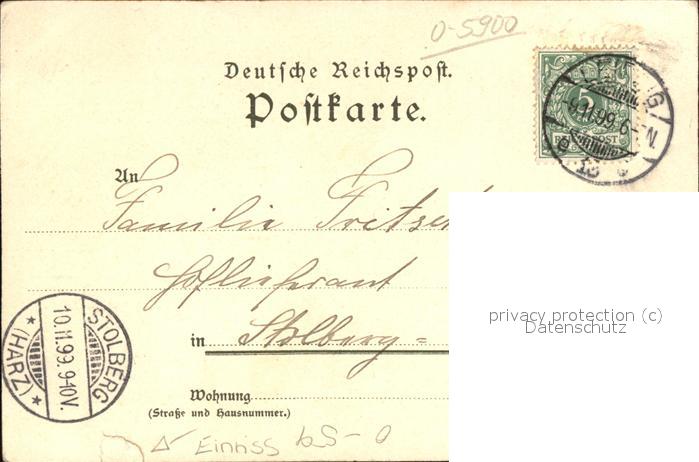 0-5900
Deutsche Reichspost.
Postkarte.
5
REICHSPOST
9.11.99. 6-7N.
An
Familie
Hoflieferant
STOLBERG
10.11.99. 9-10V.
* (HARZ) *
in Stolberg =
privacy protection (c)
Datenschutz
Wohnung
(Straße und Hausnummer.)
Einriss bS-0